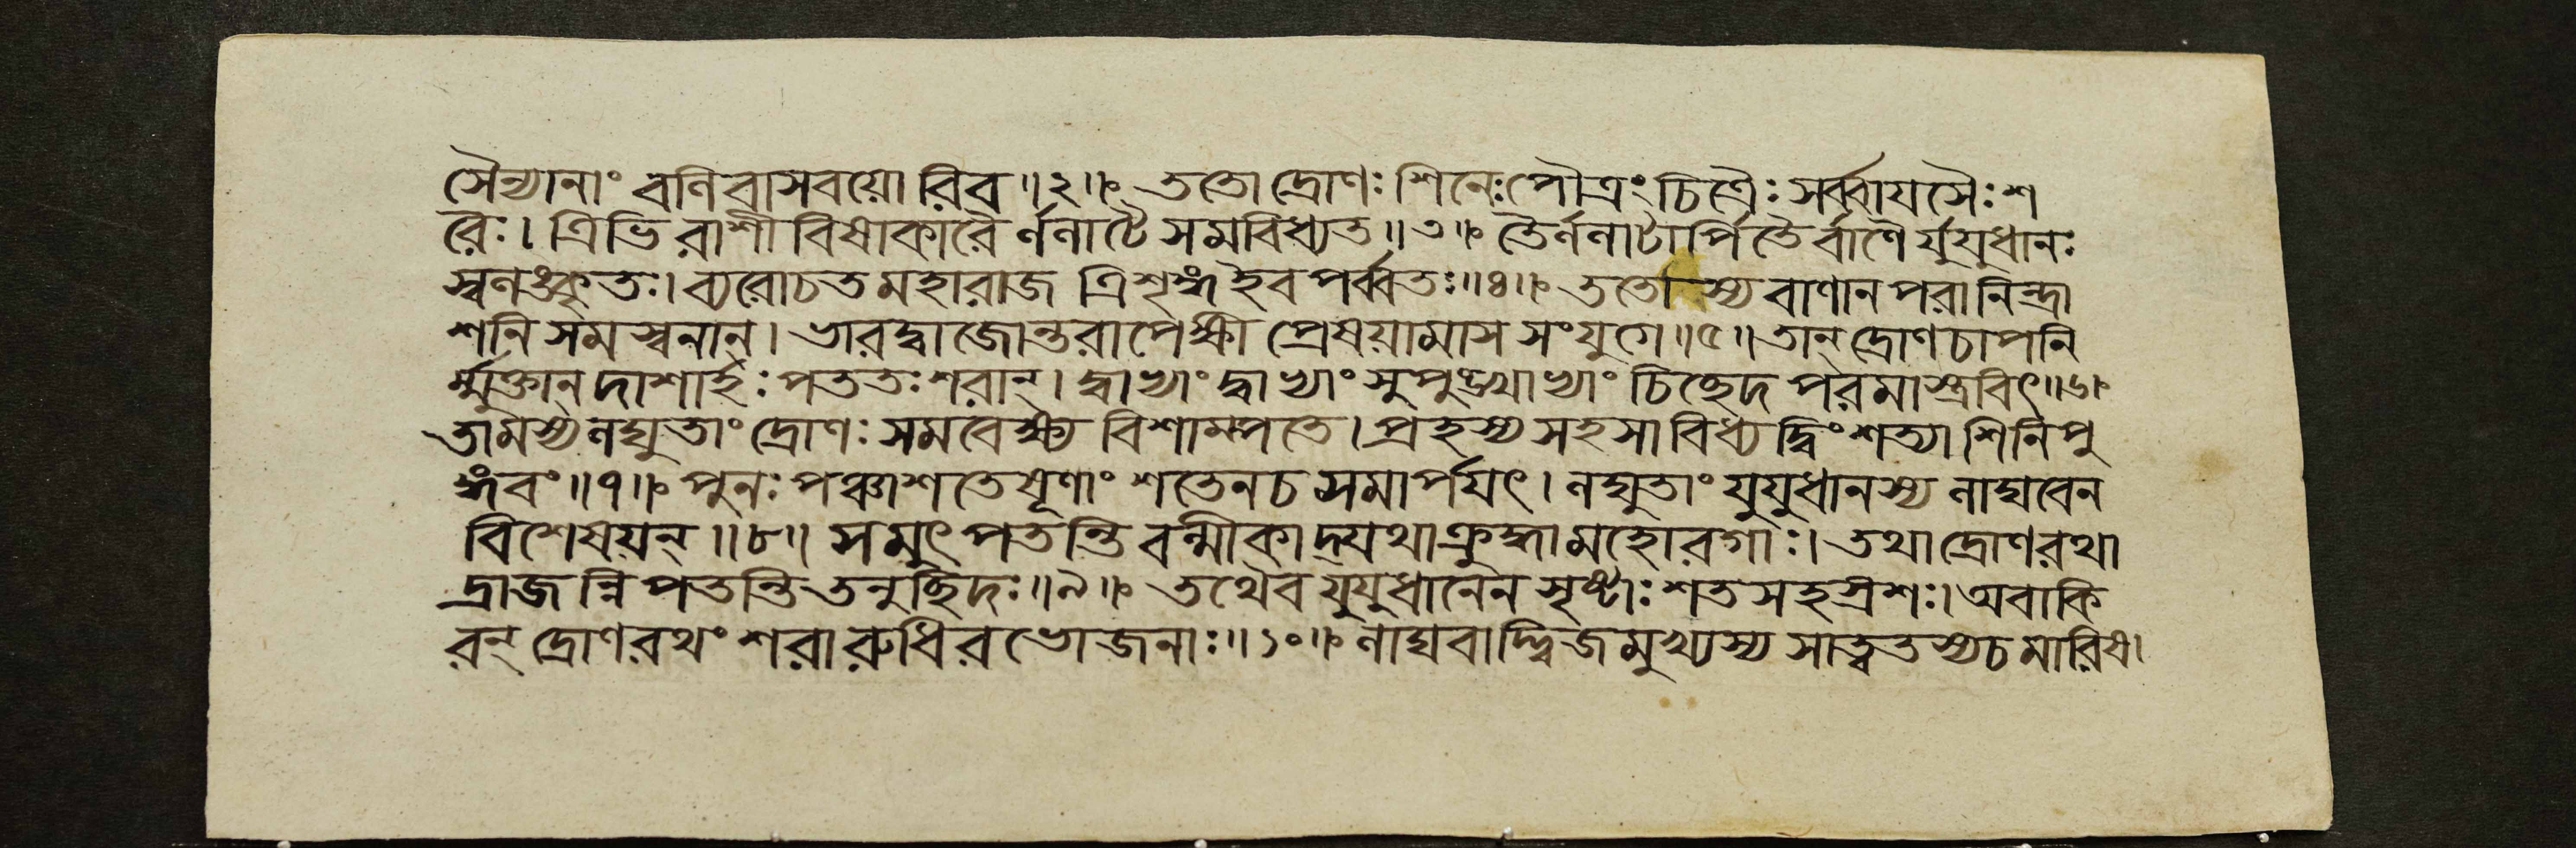 সৈন্যানাং বলিবাসবয়োরিব॥২॥ ততো দ্রোণঃ শিনেঃ পৌত্রং চিত্রৈঃ সর্ব্বায়সৈঃ শ
রৈঃ। ত্রিভিরাশীবিষাকারৈর্ললাটে সমবিধ্যত॥৩॥ তৈর্ললাটার্পিতৈর্বাণৈর্যুযুধানঃ
স্বলঙ্কৃতঃ। ব্যরোচত মহারাজ ত্রিশৃঙ্গ ইব পর্ব্বতঃ॥৪॥ ততোস্য বাণানপরানিন্দ্রা
শনিসমস্বনান্। ভারদ্বাজোন্তরাপেক্ষী প্রেষয়ামাস সংযুগে॥৫॥ তান্ দ্রোণচাপনি
র্ম্মুক্তান্ দাশার্হঃ পততঃ শরান্। দ্বাভ্যাং দ্বাভ্যাং সুপুঙ্খাভ্যাং চিচ্ছেদ পরমাস্ত্রবিৎ॥৬॥
তামস্য লঘুতাং দ্রোণঃ সমবেক্ষ্য বিশাম্পতে। প্রহস্য সহসাবিধ্যদ্বিংশত্যা শিনিপু
ঙ্গবং॥৭॥ পুনঃ পঞ্চাশতেষূণাং শতেন চ সমার্পয়ৎ। লঘুতাং যুযুধানস্য লাঘবেন
বিশেষয়ন্॥৮॥ সমুৎপতন্তি বল্মীকাদ্যথা ক্রুদ্ধা মহোরগাঃ। তথা দ্রোণরথা
দ্রাজন্নিপতন্তি তনুচ্ছিদঃ॥৯॥ তথৈব যুযুধানেন সৃষ্টাঃ শতসহস্রশঃ। অবাকি
রন্ দ্রোণরথং শরা রুধিরভোজনাঃ॥১০॥ লাঘবাদ্দ্বিজমুখ্যস্য সাত্ত্বতস্য চ মারিষ।